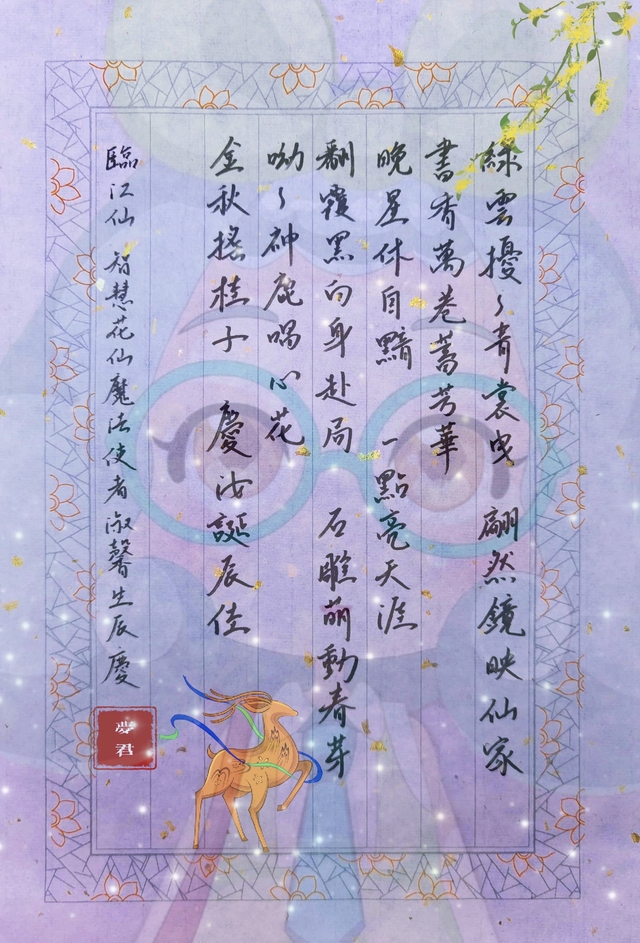 綠雲擾〻青裳曳 翩然鏡映仙家
書香萬卷蓄芳華
晚星休自黯 一點亮天涯
翻覆黑白身赴局 石雕萌動春芽
呦〻神鹿唱心花
金秋搖桂子 慶汝誕辰佳
臨江仙 智慧花仙魔法使者淑馨生辰慶
夢君